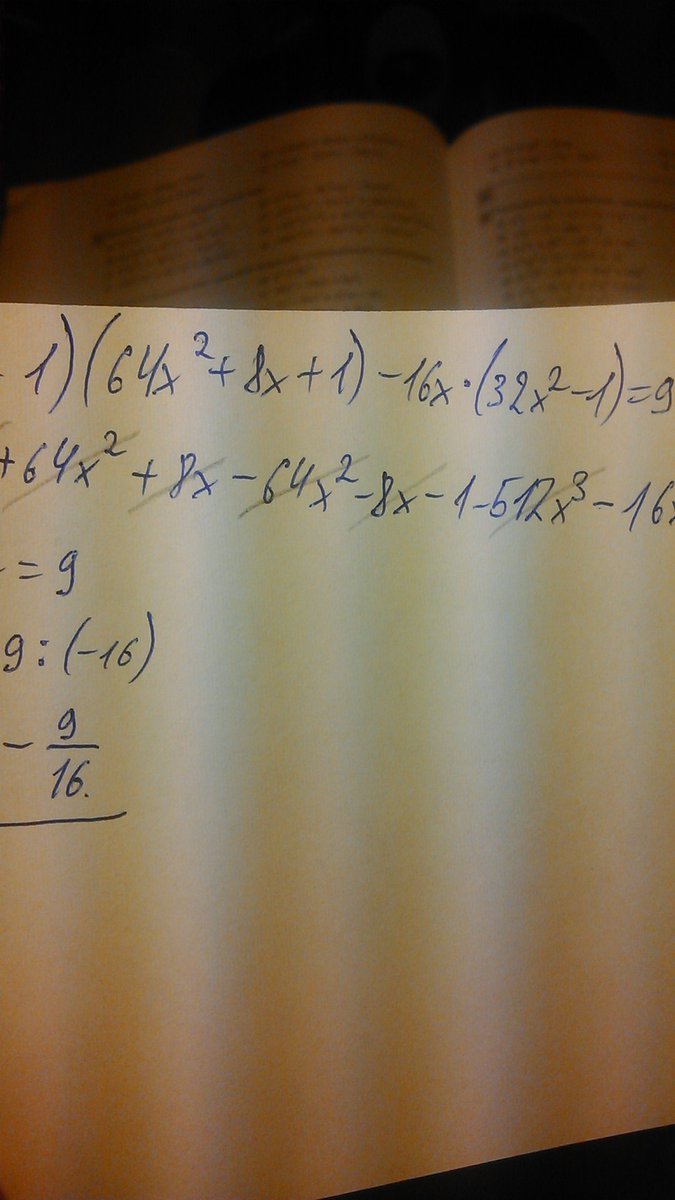 1)(64x²+8x+1)-16x·(32x²-1)=9
+64x²+8x-64x²-8x-1-512x³-16x
=9
9:(-16)
- 9/16.